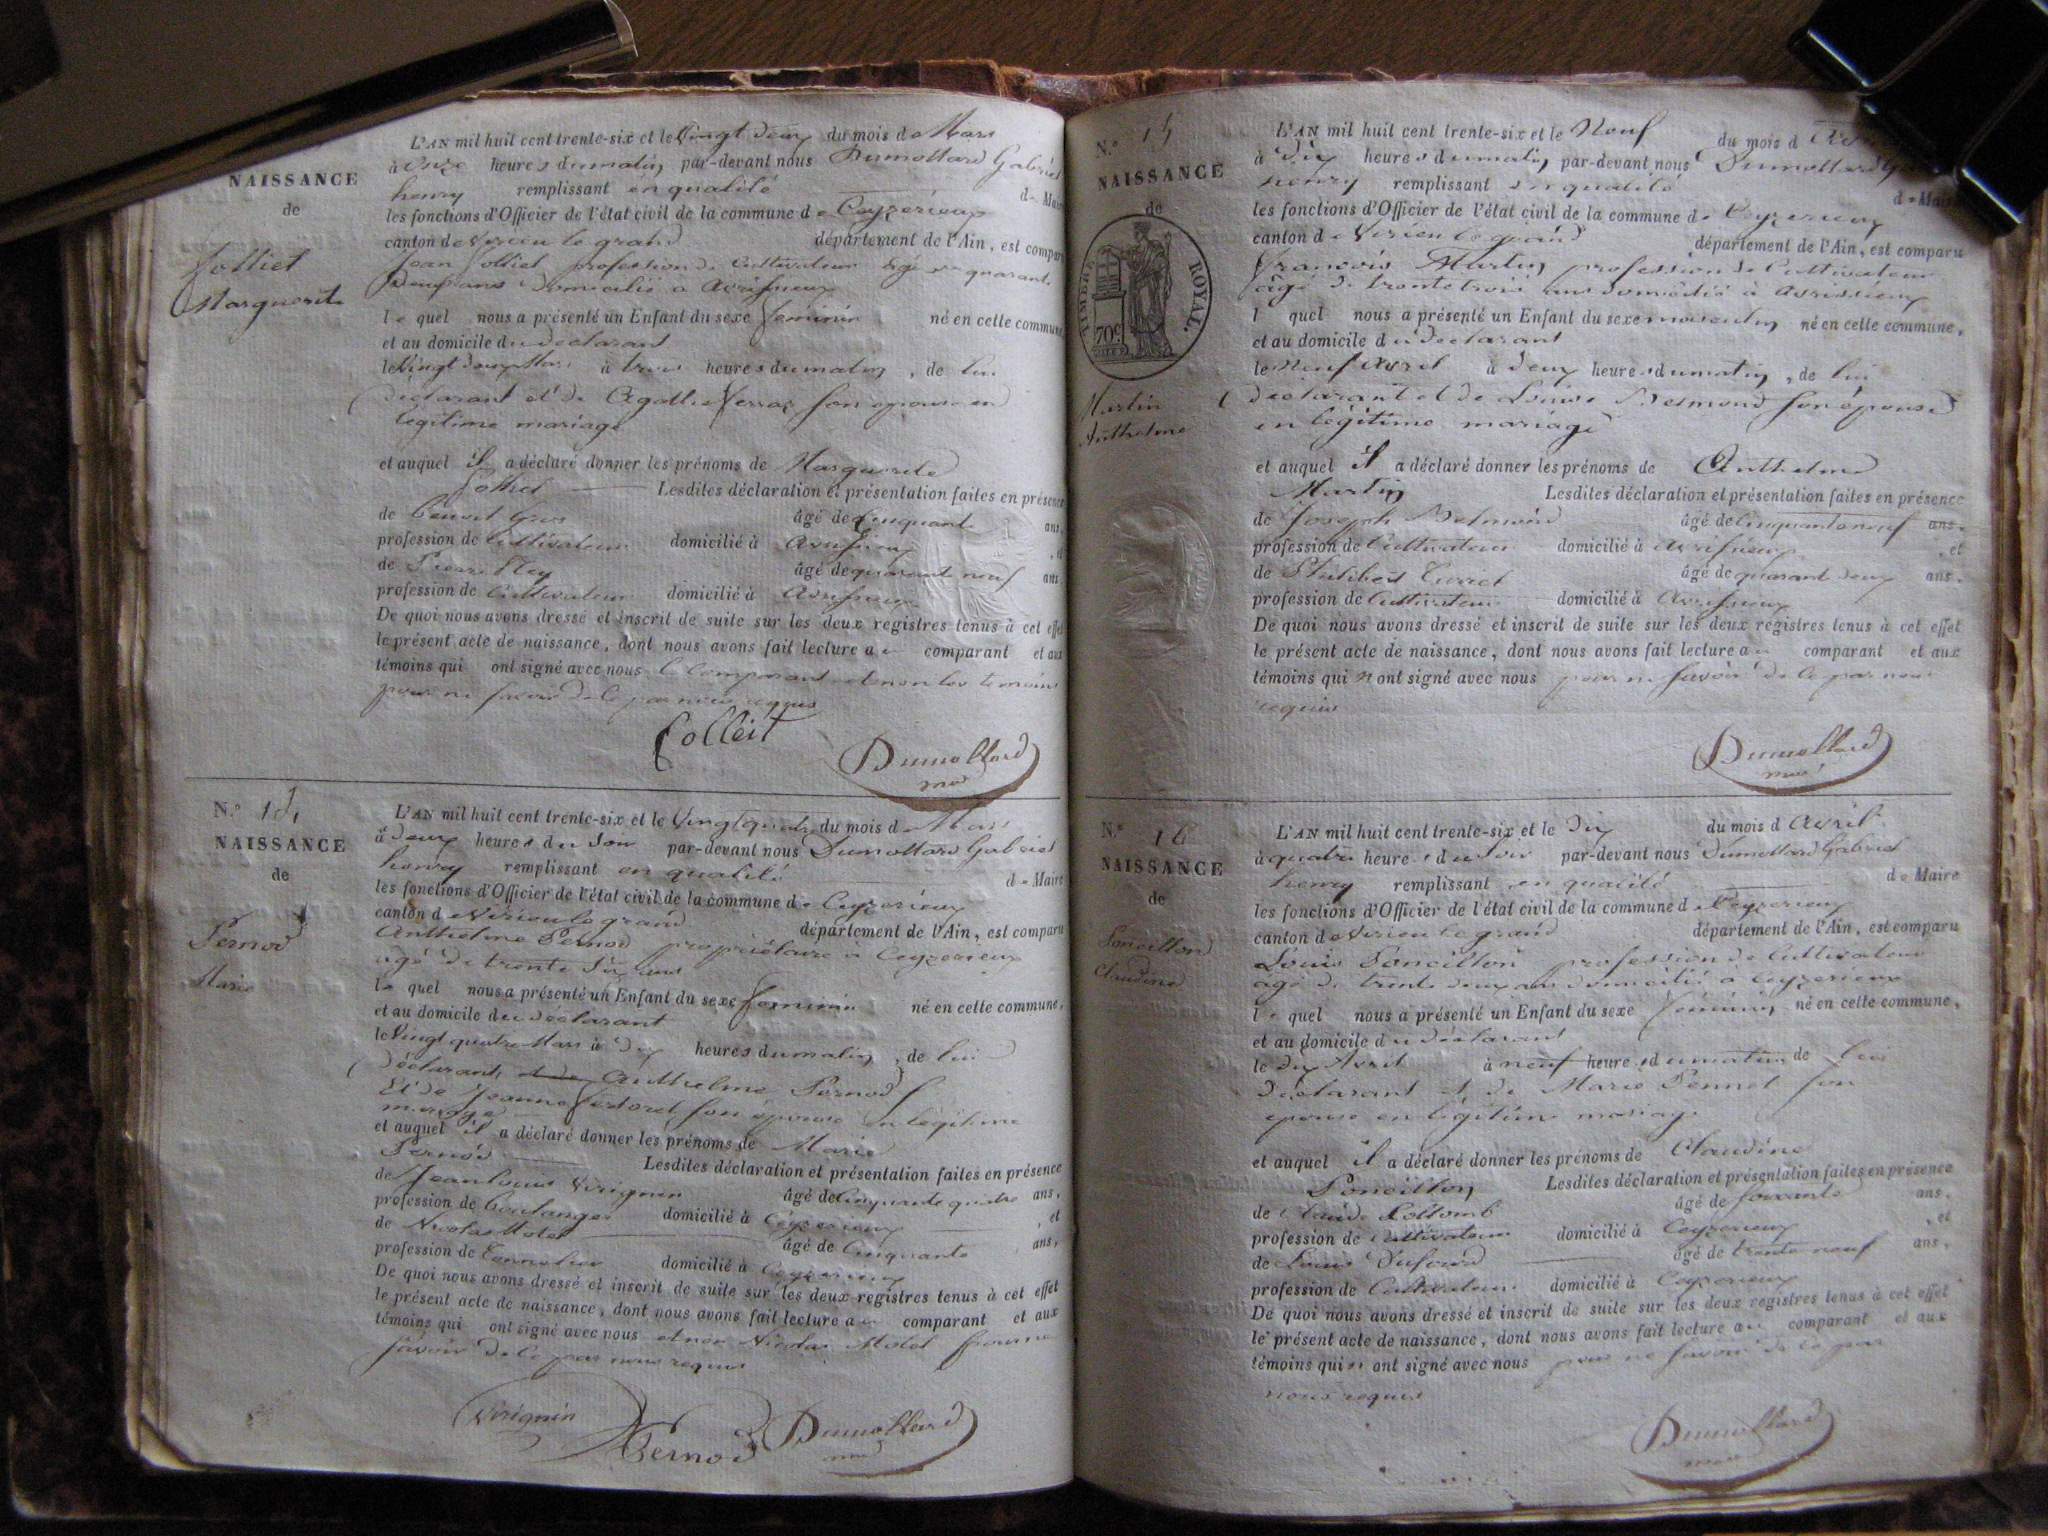 NAISSANCE
de
Jolliet
Marguerite
L'AN mil huit cent trente-six et le Vingt deux du mois de Mars
à onze heures du matin par-devant nous Dumollard Gabriel
henry remplissant en qualité de Maire
les fonctions d'Officier de l'état civil de la commune de Ceyzerieux
canton de Virieu le grand département de l'Ain, est comparu
Jean Jolliet profession de Cultivateur âgé de quarante
neuf ans domicilié à Avrissieux
le quel nous a présenté un Enfant du sexe féminin né en cette commune,
et au domicile du déclarant
le Vingt deux Mars à trois heures du matin, de lui
déclarant et de Agathe son épouse en
légitime mariage
et auquel il a déclaré donner les prénoms de Marguerite
Jolliet Lesdites déclaration et présentation faites en présence
de Benoit Gros âgé de Cinquante ans,
profession de Cultivateur domicilié à Avrissieux, et
de Pierre âgé de quarante neuf ans,
profession de Cultivateur domicilié à Avrissieux
De quoi nous avons dressé et inscrit de suite sur les deux registres tenus à cet effet
le présent acte de naissance, dont nous avons fait lecture au comparant et aux
témoins qui ont signé avec nous le comparant et non les témoins
pour ne savoir de ce par nous requis
Colleit Dumollard
N.º 14
NAISSANCE
de
Pernod
Marie
L'AN mil huit cent trente-six et le Vingt quatre du mois de Mars
à deux heures du soir par-devant nous Dumollard Gabriel
henry remplissant en qualité de Maire
les fonctions d'Officier de l'état civil de la commune de Ceyzerieux
canton de Virieu le grand département de l'Ain, est comparu
Anthelme Pernod propriétaire à Ceyzerieux
âgé de trente six ans
le quel nous a présenté un Enfant du sexe féminin né en cette commune,
et au domicile du déclarant
le Vingt quatre Mars à dix heures du matin, de lui
déclarant et de Anthelme Pernod
Et de Jeanne son épouse en légitime
mariage
et auquel il a déclaré donner les prénoms de Marie
Pernod Lesdites déclaration et présentation faites en présence
de Jean louis Virignin âgé de Cinquante quatre ans,
profession de Boulanger domicilié à Ceyzerieux, et
de Nicolas Molet âgé de Cinquante ans,
profession de Tonnelier domicilié à Ceyzerieux
De quoi nous avons dressé et inscrit de suite sur les deux registres tenus à cet effet
le présent acte de naissance, dont nous avons fait lecture au comparant et aux
témoins qui ont signé avec nous et non Nicolas Molet pour ne
savoir de ce par nous requis
Virignin Pernod Dumollard
N.º 15
NAISSANCE
de
TIMBRE ROYAL.
70c
Martin
Anthelme
L'AN mil huit cent trente-six et le Neuf du mois d'
à dix heures du matin par-devant nous Dumollard
henry remplissant en qualité de Maire
les fonctions d'Officier de l'état civil de la commune de Ceyzerieux
canton de Virieu le grand département de l'Ain, est comparu
François Martin profession de Cultivateur
âgé de trente trois ans domicilié à Avrissieux
l quel nous a présenté un Enfant du sexe masculin né en cette commune,
et au domicile du déclarant
le Neuf Avril à deux heures du matin, de lui
déclarant et de Louise Belmond son épouse
en légitime mariage
et auquel il a déclaré donner les prénoms de Anthelme
Martin Lesdites déclaration et présentation faites en présence
de Joseph Belmond âgé de Cinquante neuf ans,
profession de Cultivateur domicilié à Avrissieux, et
de Philibert âgé de quarante deux ans,
profession de Cultivateur domicilié à Avrissieux
De quoi nous avons dressé et inscrit de suite sur les deux registres tenus à cet effet
le présent acte de naissance, dont nous avons fait lecture au comparant et aux
témoins qui n'ont signé avec nous pour ne savoir de ce par nous
requis
Dumollard
N.º 16
NAISSANCE
de
Poncillon
Claudine
L'AN mil huit cent trente-six et le dix du mois d avril
à quatre heures du soir par-devant nous Dumollard Gabriel
henry remplissant en qualité de Maire
les fonctions d'Officier de l'état civil de la commune de Ceyzerieux
canton de Virieu le grand département de l'Ain, est comparu
Louis Poncillon profession de Cultivateur
âgé de trente deux ans domicilié à Ceyzerieux
le quel nous a présenté un Enfant du sexe féminin né en cette commune,
et au domicile du déclarant
le dix Avril à neuf heures du matin de lui
déclarant et de Marie Pennet son
épouse en légitime mariage
et auquel il a déclaré donner les prénoms de Claudine
Poncillon Lesdites déclaration et présentation faites en présence
de Claude Collomb âgé de soixante ans,
profession de Cultivateur domicilié à Ceyzerieux, et
de Louis Dufourd âgé de trente neuf ans,
profession de Cultivateur domicilié à Ceyzerieux
De quoi nous avons dressé et inscrit de suite sur les deux registres tenus à cet effet
le présent acte de naissance, dont nous avons fait lecture au comparant et aux
témoins qui n'ont signé avec nous pour ne savoir de ce par
nous requis
Dumollard